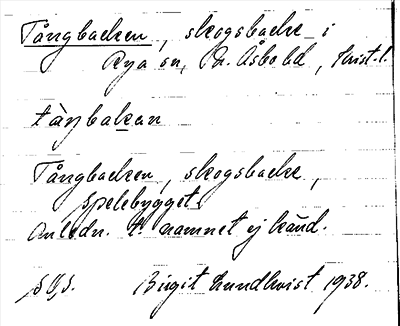 Tångbacken, skogsbacke i
Rya sn, N. Åsbo hd, Krist. l.
tàŋbakan
Tångbacken, skogsbacke,
Spelebygget.
Anledn. t. namnet ej känd.
Birgit Lundkvist 1938.